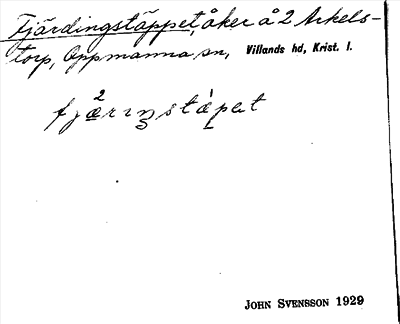 Fjärdingstäppet, åker å 2 Arkels-
torp, Oppmanna sn, Villands hd, Krist. l.
fjæ²rɪŋstàpət
JOHN SVENSSON 1929